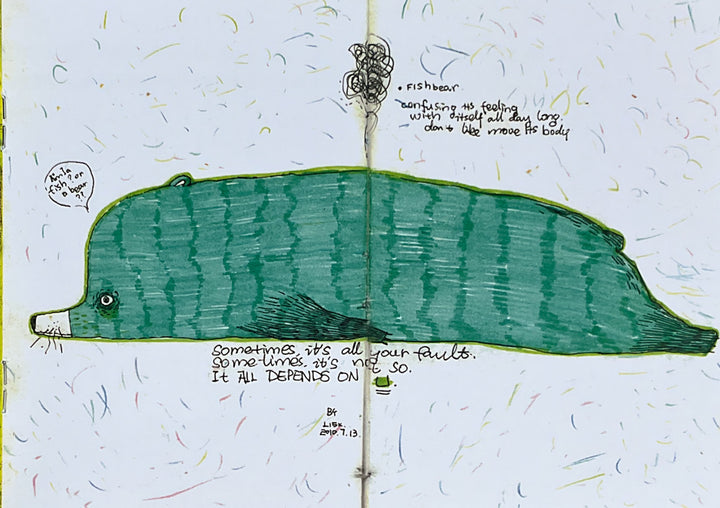 • FISHbear
confusing its feeling
with itself all day long.
don't like move its body
Am I a
fish? or
a bear
??
sometimes, it's all your faults.
sometimes, it's not so.
It ALL DEPENDS ON
BY
2010.7.13